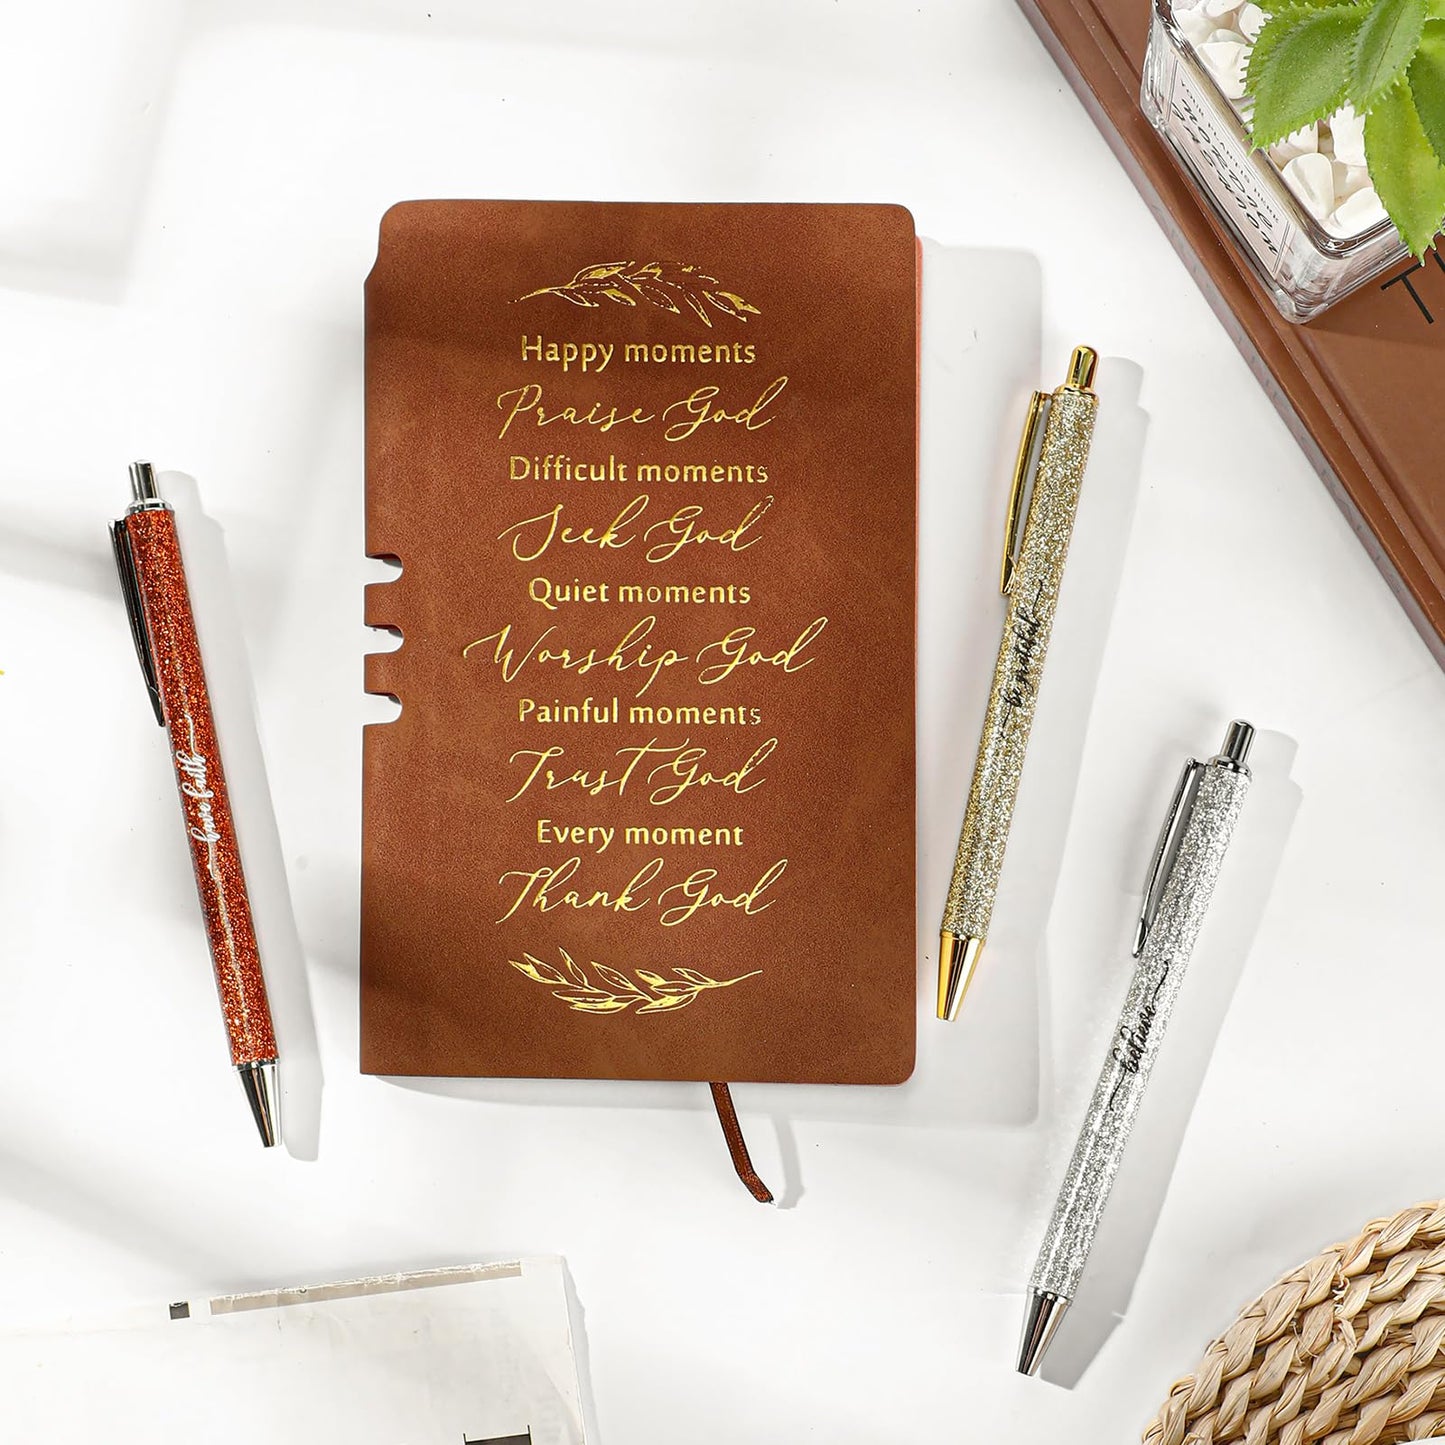 Happy moments
Praise God
Difficult moments
Seek God
Quiet moments
Worship God
Painful moments
Trust God
Every moment
Thank God
have faith
be grateful
believe